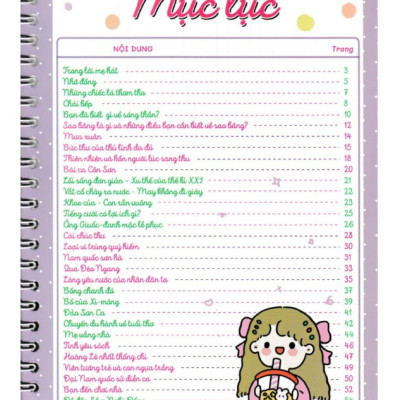 Mục lục
NỘI DUNG Trang
Trong lời mẹ hát 3
Nhà đồng 5
Những chiếc lá thơm tho 7
Chái bếp 8
Bạn đã biết gì về sóng thần? 10
Sao băng là gì và những điều bạn cần biết về sao băng? 12
Mưa xuân 14
Bức thư của thủ lĩnh da đỏ 15
Thiên nhiên và hồn người lúc sang thu 18
Bài ca Côn Sơn 20
Lối sống đơn giản - Xu thế của thế kỉ XXI 21
Vắt cổ chày ra nước - May không đi giày 22
Khoe của - Con rắn vuông 23
Tiếng cười có lợi ích gì? 25
Ông Giuốc-đanh mặc lễ phục 26
Cái chúc thư 28
Loại vi trùng quý hiếm 30
Nam quốc sơn hà 31
Qua Đèo Ngang 33
Lòng yêu nước của nhân dân ta 35
Bồng chanh đỏ 37
Bố của Xi-mông 39
Đảo Sơn Ca 41
Chuyến du hành về tuổi thơ 42
Mẹ vắng nhà 44
Tình yêu sách 46
Hoàng Lê nhất thống chí 47
Viên tướng trẻ và con ngựa trắng 49
Đại Nam quốc sử diễn ca 50
Bến đò ngày mưa 52